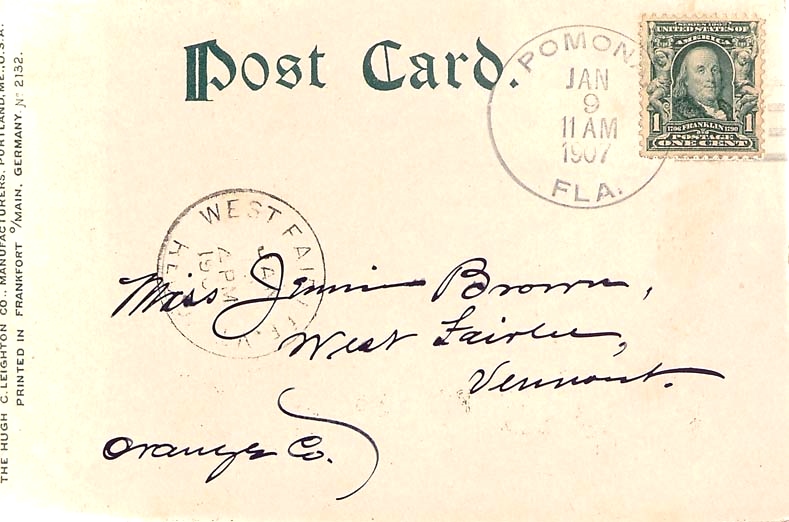 THE HUGH C. LEIGHTON CO., MANUFACTURERS, PORTLAND, ME., U.S.A.
PRINTED IN FRANKFORT O/MAIN, GERMANY. No 2132.
Post Card.
POMONA
JAN
9
11 AM
1907
FLA.
SERIES 1902
UNITED STATES OF
AMERICA
1 1
1706 FRANKLIN 1790
POSTAGE
ONE CENT
WEST FAIRLEE, V
JAN
4 PM
190
REC
Miss Jennie Brown,
West Fairlee,
Vermont.
Orange Co.